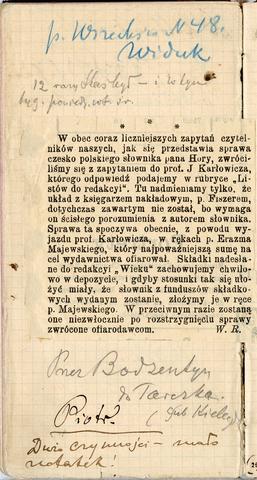 N 48.
12 razy
* * *
W obec coraz liczniejszych zapytań czytel-
ników naszych, jak się przedstawia sprawa
czesko polskiego słownika pana Hory, zwróci-
liśmy się z zapytaniem do prof. J Karłowicza,
którego odpowiedź podajemy w rubryce „Li-
stów do redakcyi". Tu nadmieniamy tylko, że
układ z księgarzem nakładowym, p. Fiszerem,
dotychczas zawartym nie został, bo wymaga
on ścisłego porozumienia z autorem słownika.
Sprawa ta spoczywa obecnie, z powodu wy-
jazdu prof Karłowicza, w rękach p. Erazma
Majewskiego, który najpoważniejszą sumę na
cel wydawnictwa ofiarował. Składki nadesła-
ne do redakcyi „Wieku" zachowujemy chwilo-
wo w depozycie, i gdyby stosunki tak się uło-
żyć miały, że słownik z funduszów składko-
wych wydanym zostanie, złożymy je w ręce
p. Majewskiego. W przeciwnym razie zostaną
one niezwłocznie po rozstrzygnięciu sprawy
zwrócone ofiarodawcom. W. R.
Przez Bodzentyn
do
Piotr.
Dużo czynności – mało
notatek!